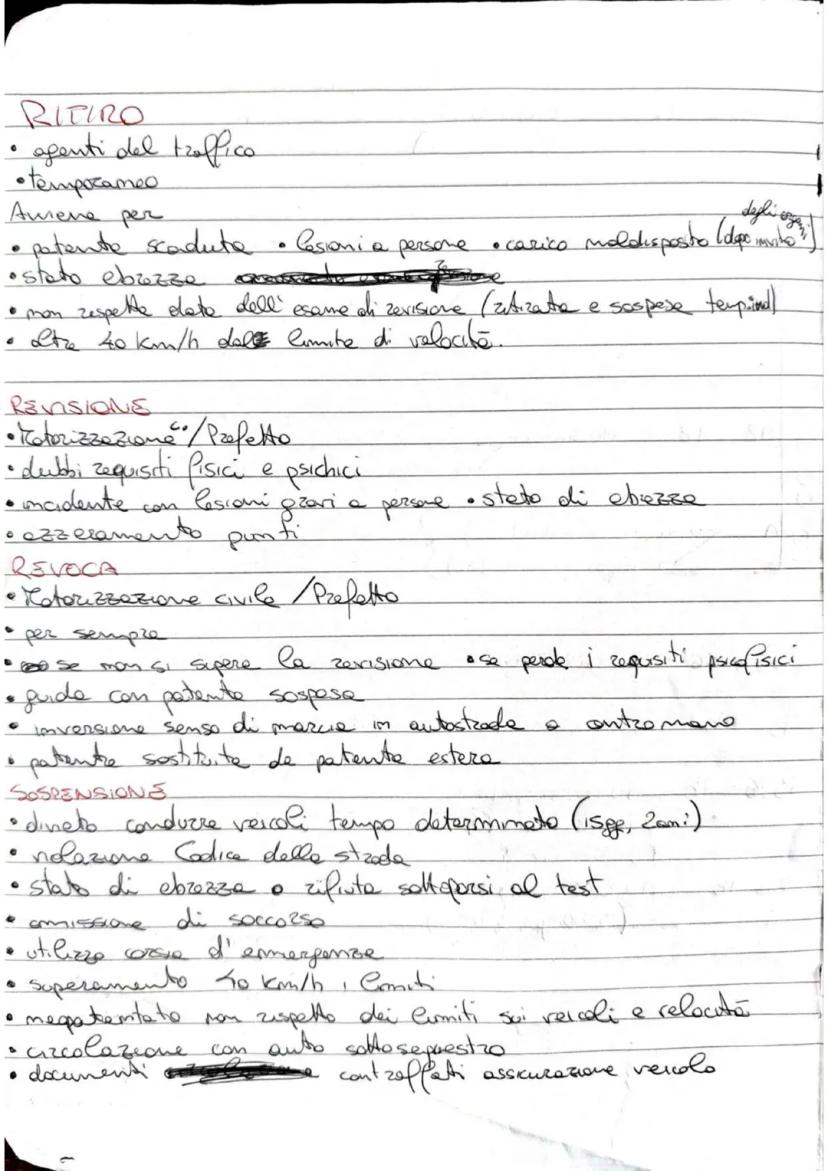 RITIRO
• agenti del traffico
• temporaneo
Avviene per
• patente scaduta • lesioni a persone • carico maldisposto (dopo invito degli agenti)
• stato ebrezza
• non rispetta data dell'esame di revisione (ritirata e sospesa temp.ind)
• oltre 40 km/h dal limite di velocità.
REVISIONE
• Motorizzazione c. / Prefetto
• dubbi requisiti fisici e psichici
• incidente con lesioni gravi a persone • stato di ebrezza
• azzeramento punti
REVOCA
• Motorizzazione civile / Prefetto
• per sempre
• se non si supera la revisione • se perde i requisiti psicofisici
• guida con patente sospesa
• inversione senso di marcia in autostrada o contromano
• patente sostituita da patente estera
SOSPENSIONE
• divieto condurre veicoli tempo determinato (15gg, 2anni)
• violazione Codice della strada
• stato di ebrezza o rifiuta sottoporsi al test
• omissione di soccorso
• utilizzo corsia d'emergenza
• superamento 40 km/h i limiti
• neopatentato non rispetto dei limiti sui veicoli e velocità
• circolazione con auto sotto sequestro
• documenti contraffatti assicurazione veicolo